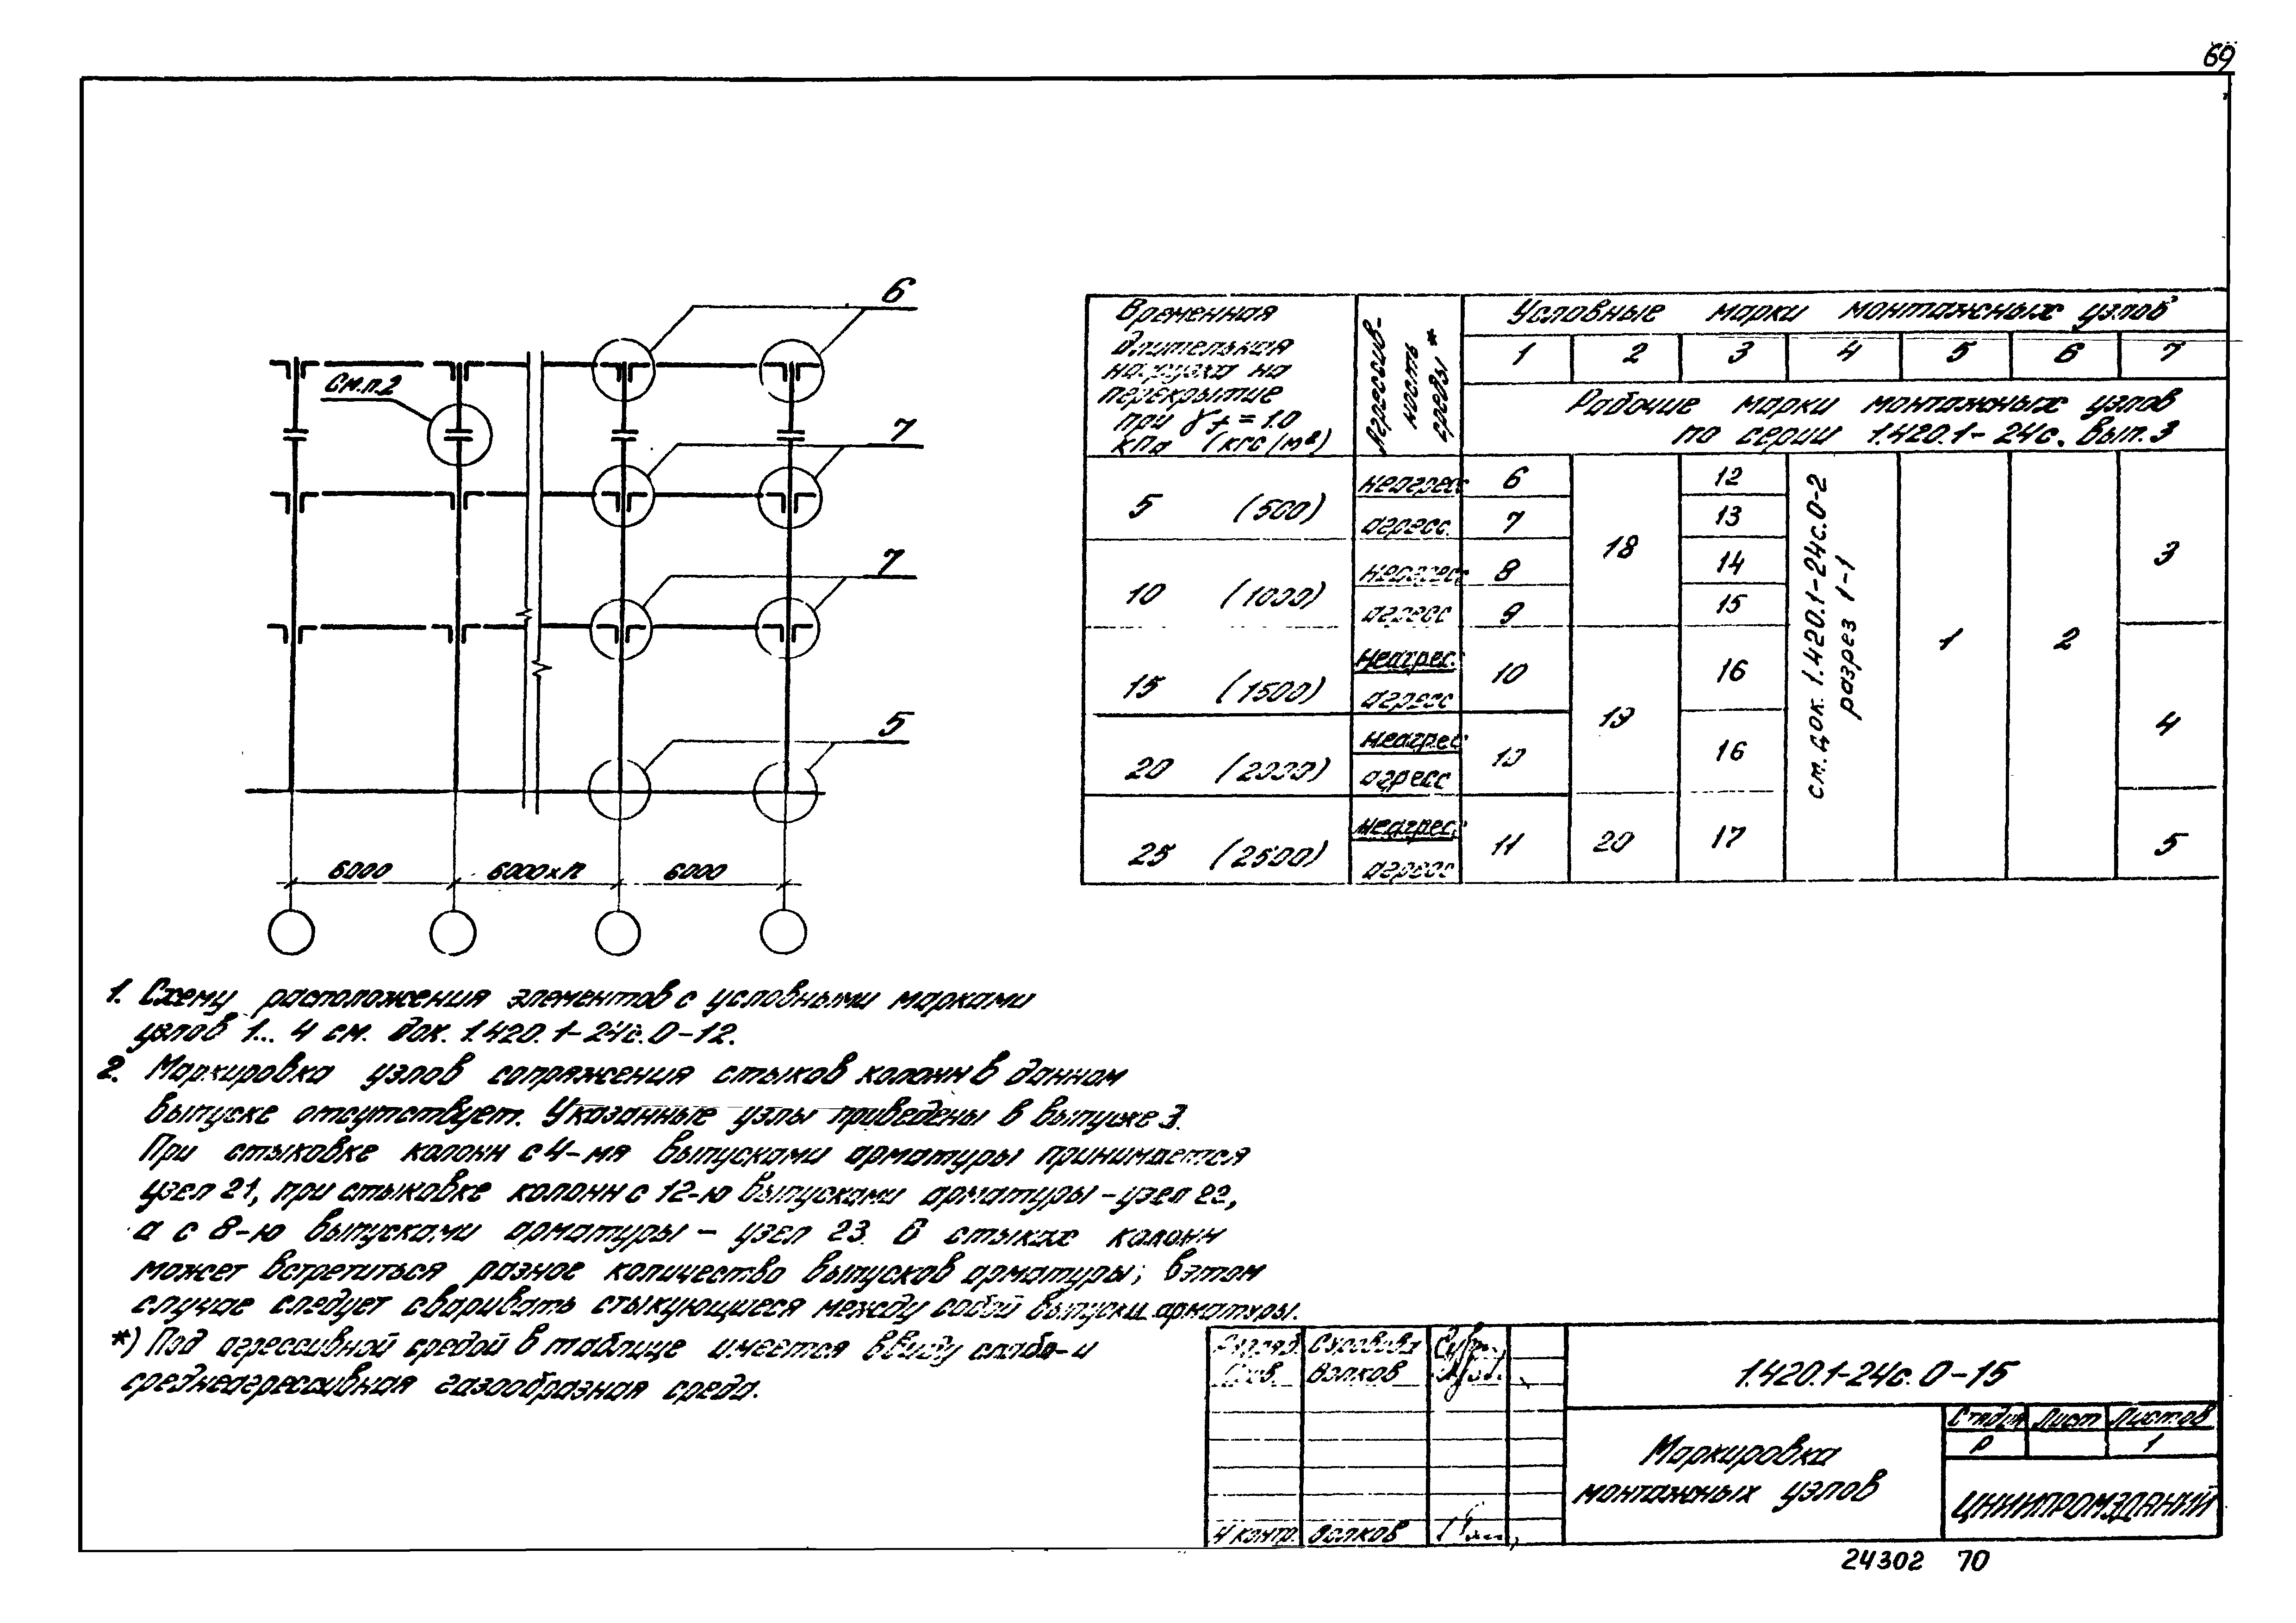 69
6
См.п.2
7
7
5
6000 6000хп 6000
Временная
длительная
нагрузка на
перекрытие
при γf = 1.0
кПа (кгс/м²)
Агрессив-
ность
среды *
Условные марки монтажных узлов
1 2 3 4 5 6 7
Рабочие марки монтажных узлов
по серии 1.420.1-24с. Вып.3
5 (500) неагресс 6 18 12 1 2 3
агресс. 7 13
10 (1000) неагресс 8 14
агресс 9 15
15 (1500) неагрес. 10 19 16 4
агресс
20 (2000) неагрес 16
агресс
25 (2500) неагрес. 11 20 17 5
агресс
см. док. 1.420.1-24с.0-2
разрез 1-1
1. Схему расположения элементов с условными марками
узлов 1... 4 см. док. 1.420.1-24с.0-12.
2. Маркировка узлов сопряжения стыков колонн в данном
выпуске отсутствует. Указанные узлы приведены в выпуске 3.
При стыковке колонн с 4-мя выпусками арматуры принимается
узел 21, при стыковке колонн с 12-ю выпусками арматуры - узел 22,
а с 8-ю выпусками арматуры - узел 23. В стыках колонн
может встретиться разное количество выпусков арматуры; в этом
случае следует сваривать стыкующиеся между собой выпуски арматуры.
*) Под агрессивной средой в таблице имеется ввиду слабо- и
среднеагрессивная газообразная среда.
Волков
Н контр. Волков
1.420.1-24с.0-15
Маркировка
монтажных узлов
Стадия Лист Листов
Р 1
ЦНИИПРОМЗДАНИЙ
24302 70